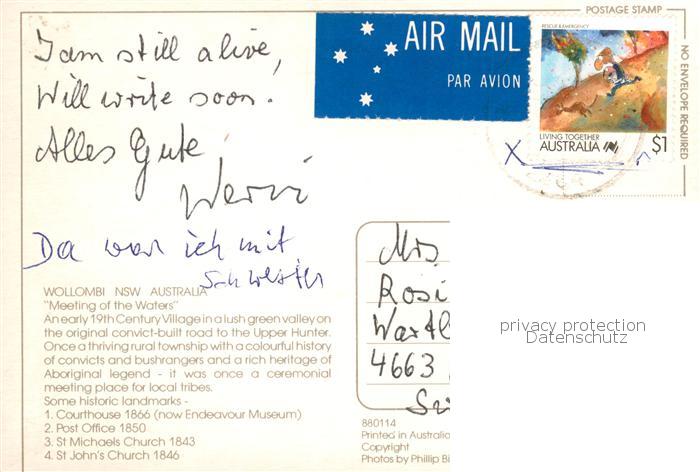 POSTAGE STAMP
NO ENVELOPE REQUIRED
AIR MAIL
PAR AVION
RESCUE & EMERGENCY
LIVING TOGETHER
AUSTRALIA $1
I am still alive,
Will write soon.
Alles Gute
Da war ich mit
Schwester
WOLLOMBI NSW AUSTRALIA
"Meeting of the Waters"
An early 19th Century Village in a lush green valley on
the original convict-built road to the Upper Hunter.
Once a thriving rural township with a colourful history
of convicts and bushrangers and a rich heritage of
Aboriginal legend - it was once a ceremonial
meeting place for local tribes.
Some historic landmarks -
1. Courthouse 1866 (now Endeavour Museum)
2. Post Office 1850
3. St Michaels Church 1843
4. St John's Church 1846
Mrs
Rosi
4663
880114
Printed in Australia
Copyright
Photos by Phillip Bi
privacy protection
Datenschutz